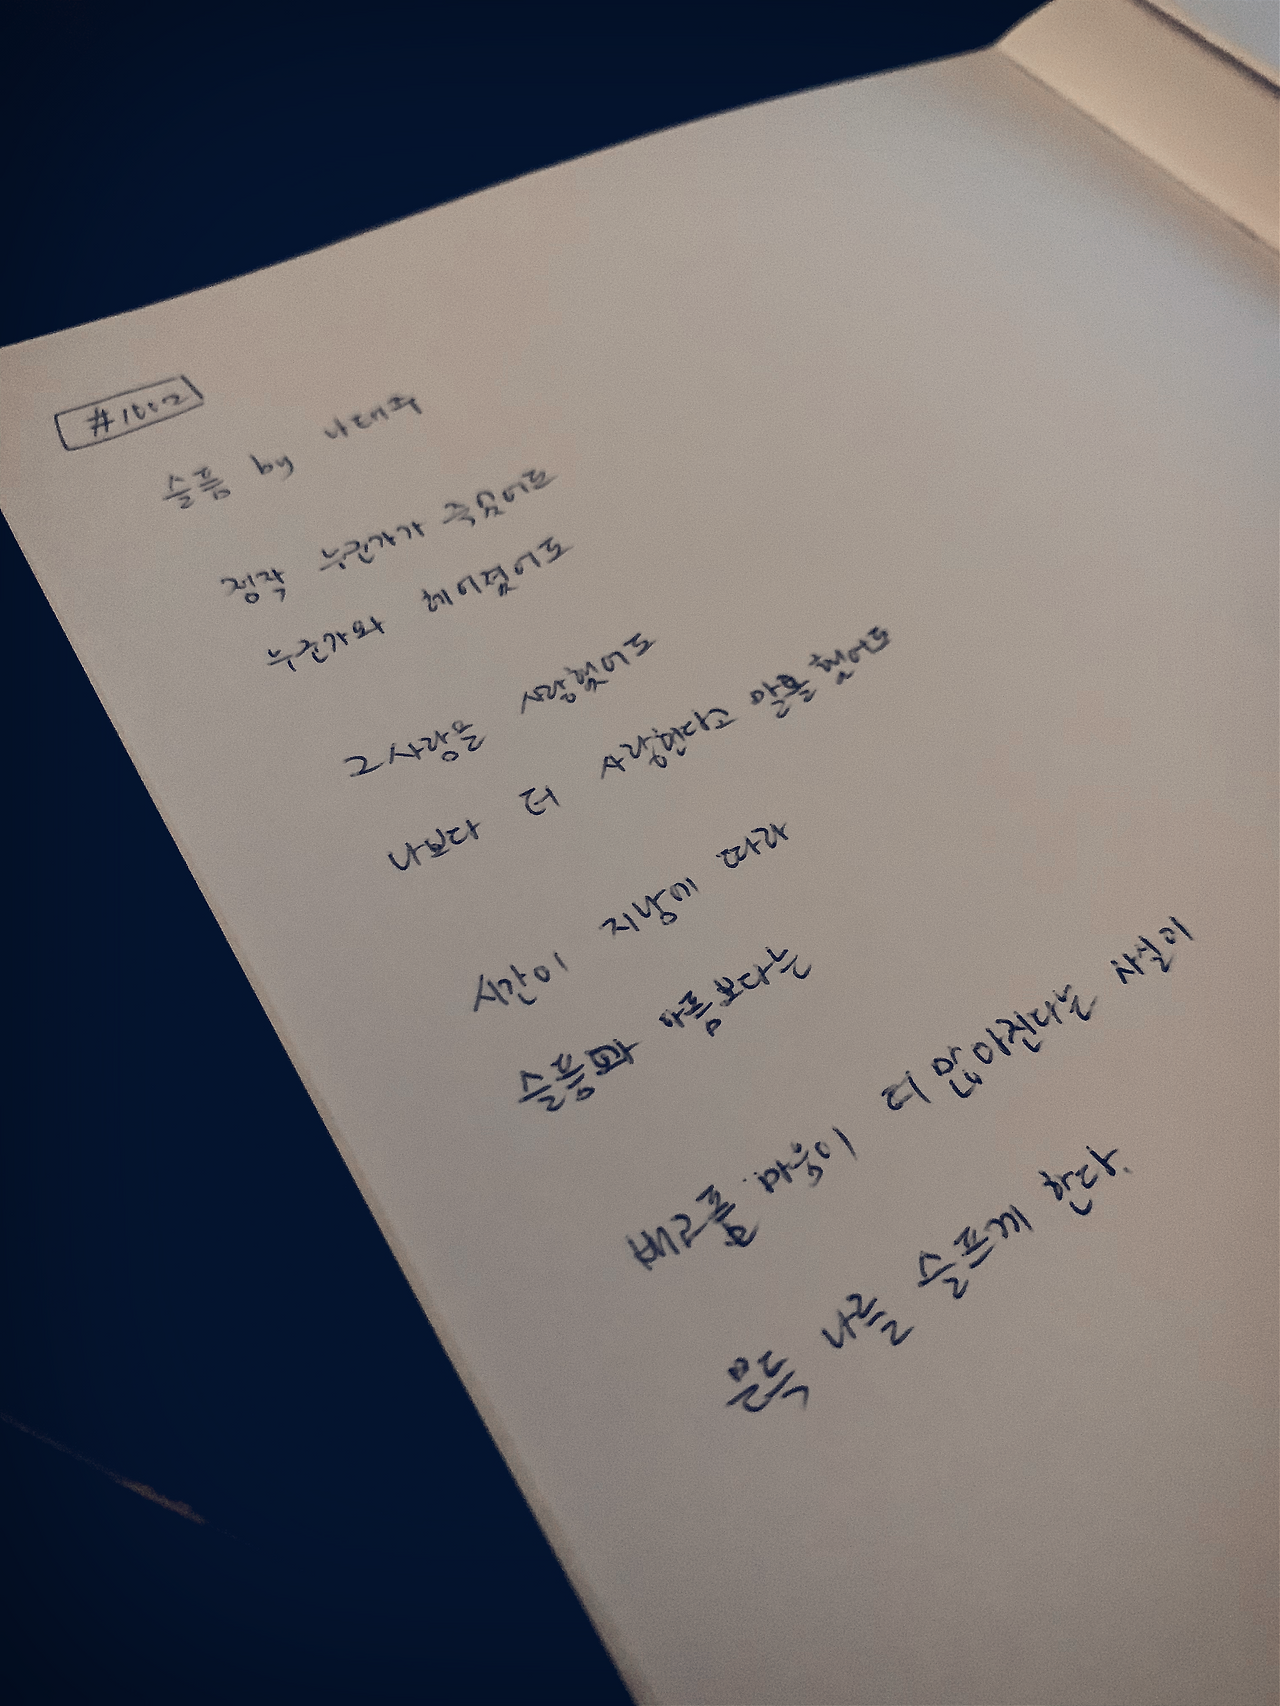 #1002
슬픔 by 나태주
정작 누군가가 죽었어도
누군가와 헤어졌어도
그 사랑을 사랑했어도
나보다 더 사랑한다고 말을 했어도
시간이 지남에 따라
슬픔과 아픔보다는
배고플 마음이 더 많아진다는 사실이
문득 나를 슬프게 한다.